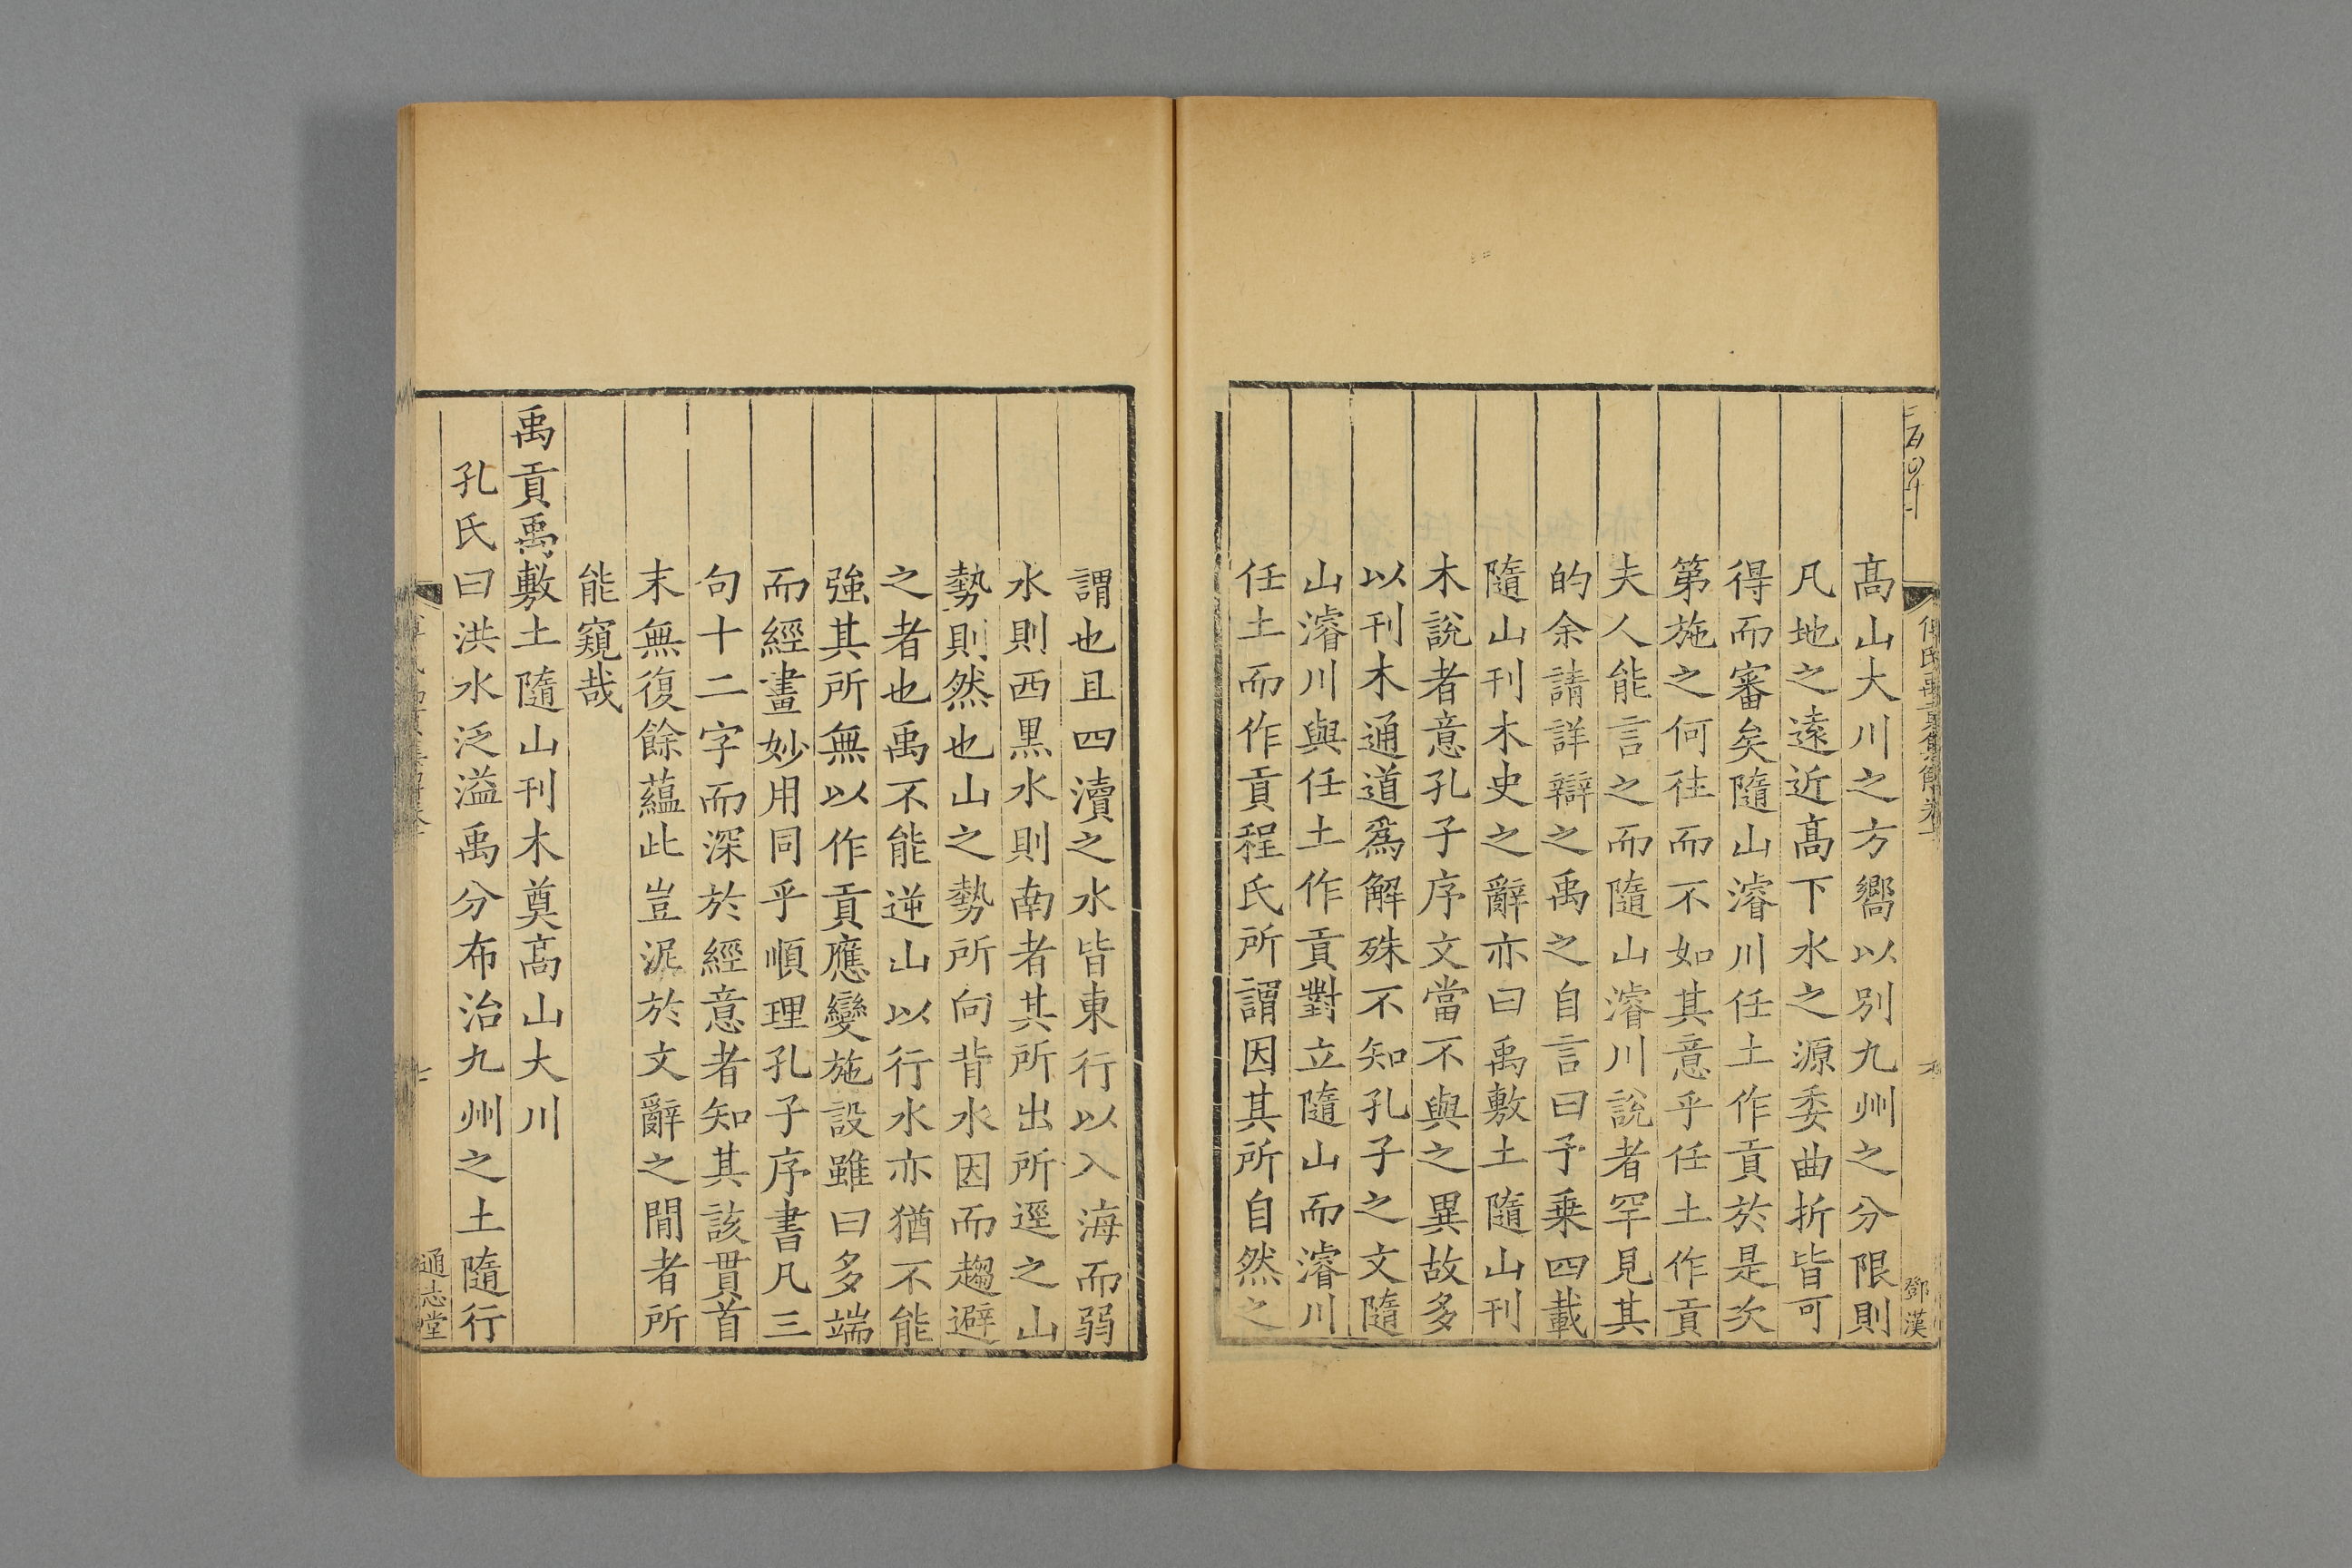 高山大川之方嚮以别九州之分限則
凡地之逺近髙下水之源委曲折皆可
得而審矣隨山濬川任土作貢於是次
第施之何徃而不如其意乎任土作貢
夫人能言之而隨山濬川說者罕見其
的余請詳辯之禹之自言曰予乗四載
隨山刊木史之辭亦曰禹敷土隨山刊
木說者意孔子序文當不與之異故多
以刊木通道爲解殊不知孔子之文隨
山濬川與任土作貢對立隨山而濬川
任土而作貢程氏所謂因其所自然之
鄧漢
謂也且四瀆之水皆東行以入海而弱
水則西黒水則南者其所出所逕之山
勢則然也山之勢所向背水因而趨避
之者也禹不能逆山以行水亦猶不能
強其所無以作貢應變施設雖曰多端
而經畫妙用同乎順理孔子序書凡三
句十二字而深於經意者知其該貫首
末無復餘蘊此豈泥於文辭之閒者所
能窺哉
禹貢禹敷土隨山刊木奠高山大川
孔氏曰洪水泛溢禹分布治九州之土隨行
通志堂